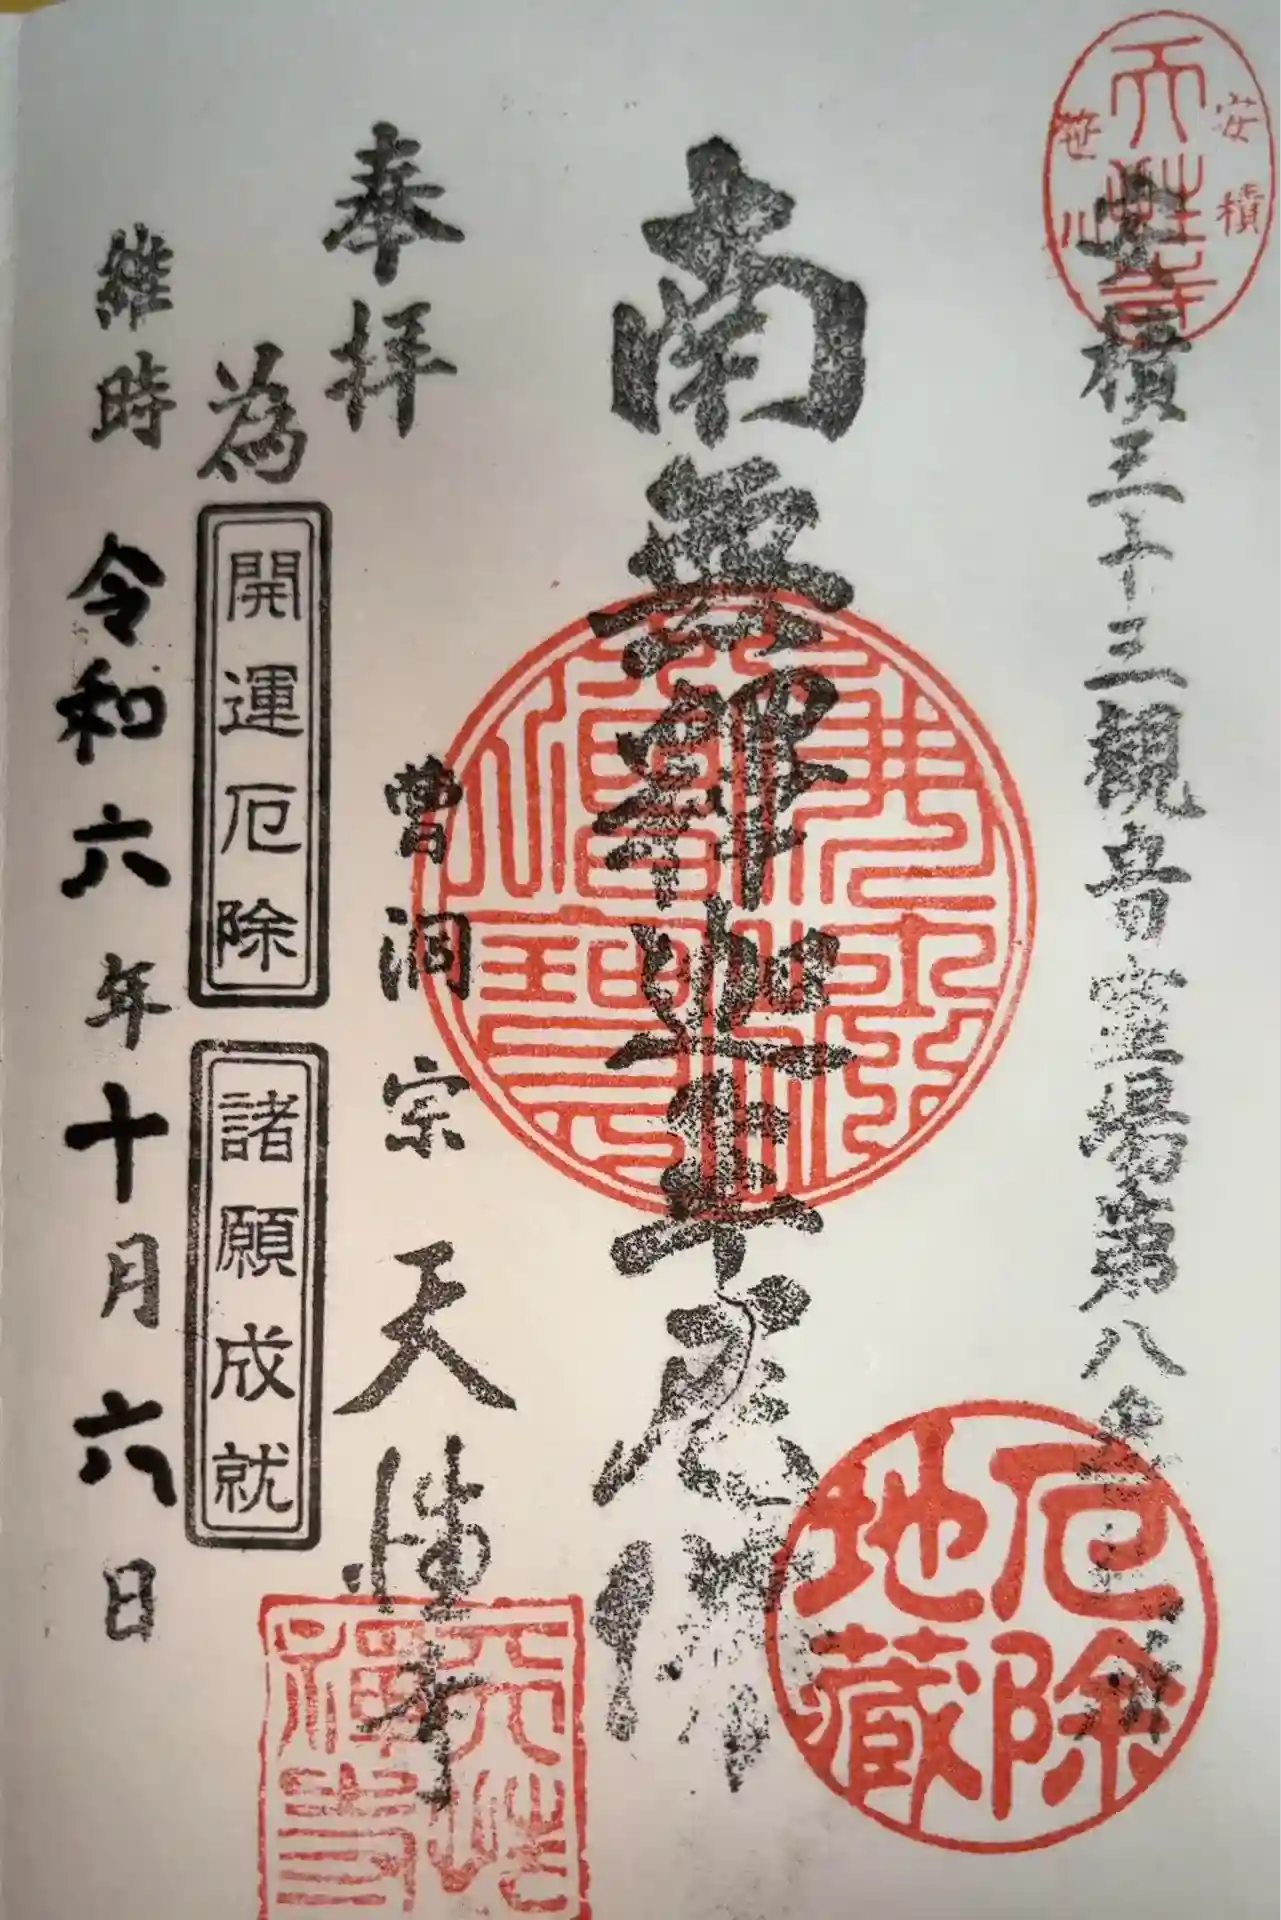 安積
天性寺
笹川
安積三十三観音霊場第八番
厄除
地蔵
南無釋迦牟尼佛
佛法
僧寶
奉拝
曹洞宗 天性寺
天性
禅寺
為 開運厄除 諸願成就
維時 令和六年十月六日